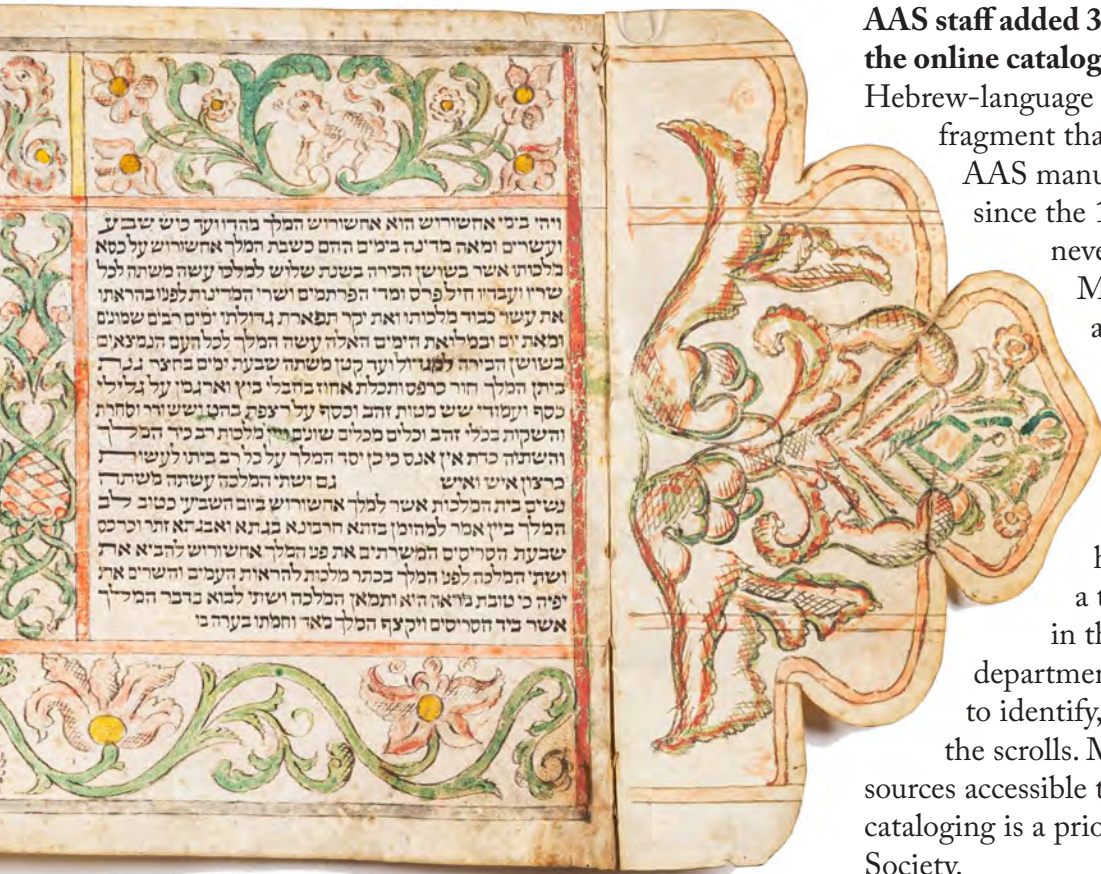 ויהי בימי אחשורוש הוא אחשורוש המלך מהדו ועד כוש שבע
ועשרים ומאה מדינה בימים ההם כשבת המלך אחשורוש על כסא
מלכותו אשר בשושן הבירה בשנת שלוש למלכו עשה משתה לכל
שריו ועבדיו חיל פרס ומדי הפרתמים ושרי המדינות לפניו בהראתו
את עשר כבוד מלכותו ואת יקר תפארת גדולתו ימים רבים שמונים
ומאת יום ובמלואת הימים האלה עשה המלך לכל העם הנמצאים
בשושן הבירה למגדול ועד קטן משתה שבעת ימים בחצר גנת
ביתן המלך חור כרפס ותכלת אחוז בחבלי בוץ וארגמן על גלילי
כסף ועמודי שש מטות זהב וכסף על רצפת בהט ושש ודר וסחרת
והשקות בכלי זהב וכלים מכלים שונים מלכות רב כיד המלך
והשתיה כדת אין אנס כי כן יסד המלך על כל רב ביתו לעשות
כרצון איש ואיש גם ושתי המלכה עשתה משתה
נשים בית המלכות אשר למלך אחשורוש ביום השביעי כטוב לב
המלך ביין אמר למהומן בזתא חרבונא בגתא ואבגתא זתר וכרכס
שבעת הסריסים המשרתים את פני המלך אחשורוש להביא את
ושתי המלכה לפני המלך בכתר מלכות להראות העמים והשרים את
יפיה כי טובת מראה היא ותמאן המלכה ושתי לבוא בדבר המלך
אשר ביד הסריסים ויקצף המלך מאד וחמתו בערה בו
AAS staff added 3
the online catalog
Hebrew-language
fragment tha
AAS manu
since the 1
neve
M
a
h
a t
in th
departmen
to identify,
the scrolls. M
sources accessible t
cataloging is a prio
Society.